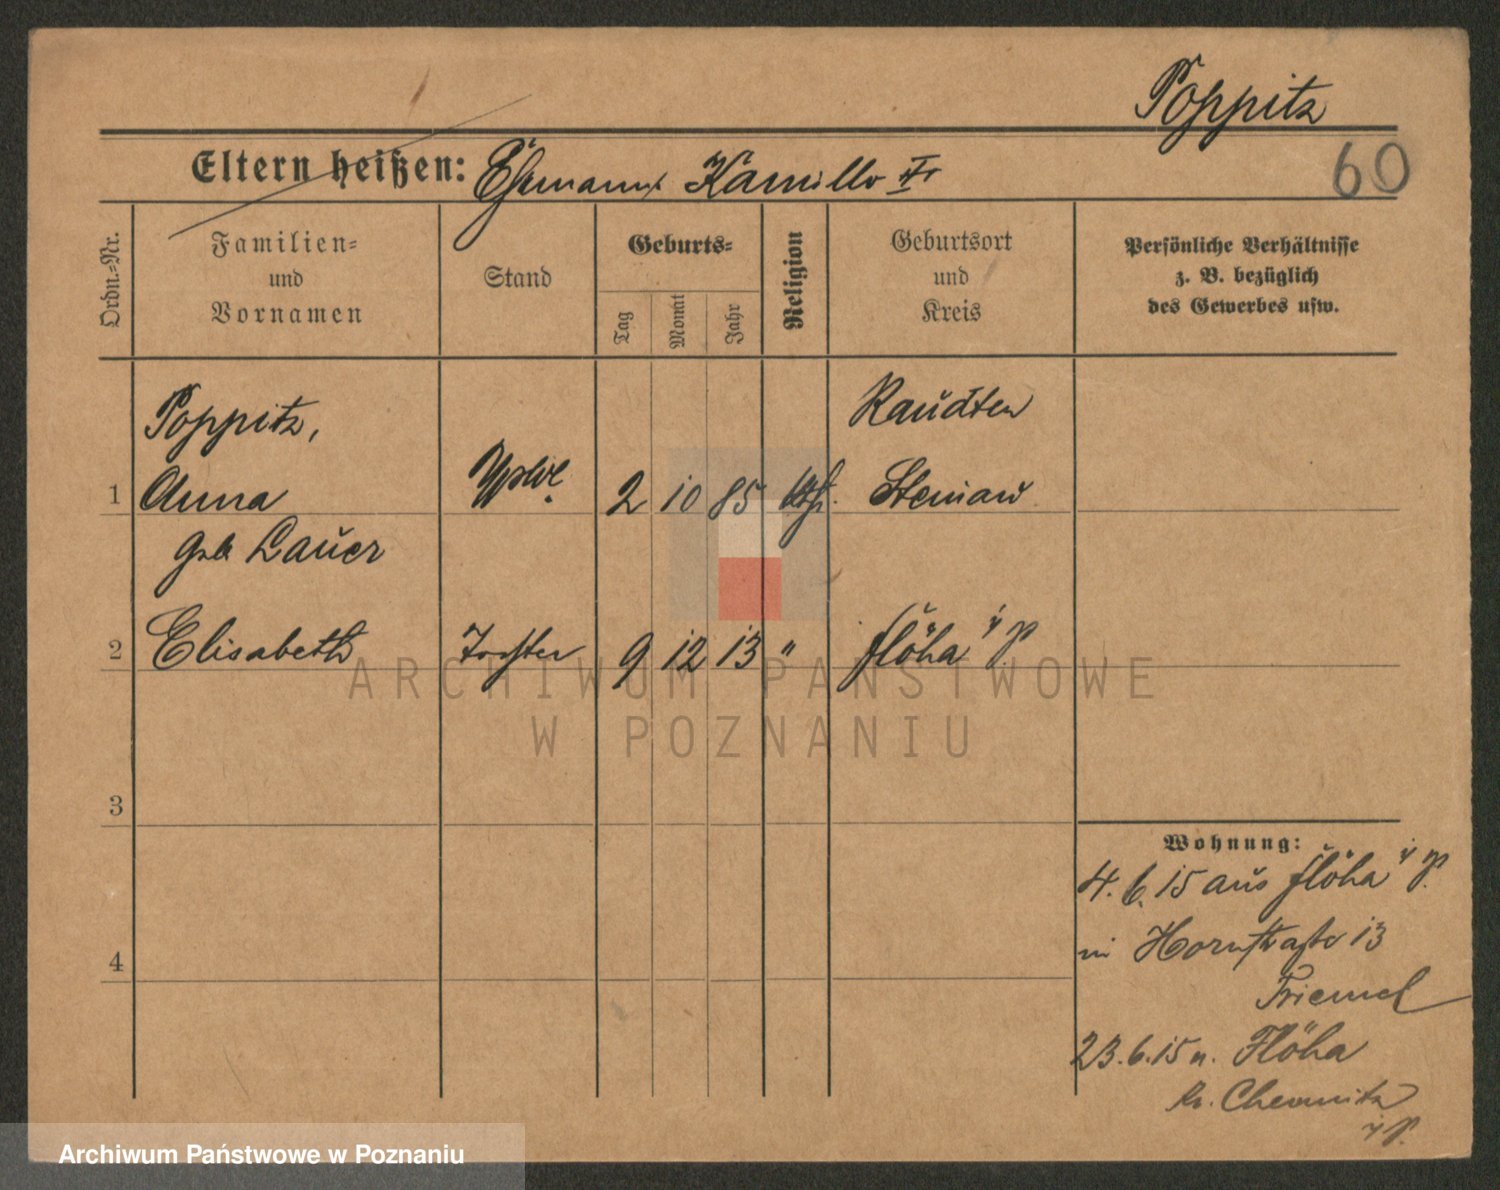 Poppitz
Eltern heißen: Ehemann Kamillo
60
Ordn.-Nr.
Familien-
und
Vornamen
Stand
Geburts-
Tag
Monat
Jahr
Religion
Geburtsort
und
Kreis
Persönliche Verhältnisse
z. B. bezüglich
des Gewerbes usw.
Poppitz,
Raudten
1 Anna 2 10 85 Steinau
geb Lauer
2 Elisabeth Tochter 9 12 13 " Flöha i/S.
3
4
Wohnung:
4. 6. 15 aus Flöha i/S.
in Hornstraße 13
Triemel
23. 6. 15 n. Flöha
Kr. Chemnitz
i/S.
ARCHIWUM PAŃSTWOWE
W POZNANIU
Archiwum Państwowe w Poznaniu